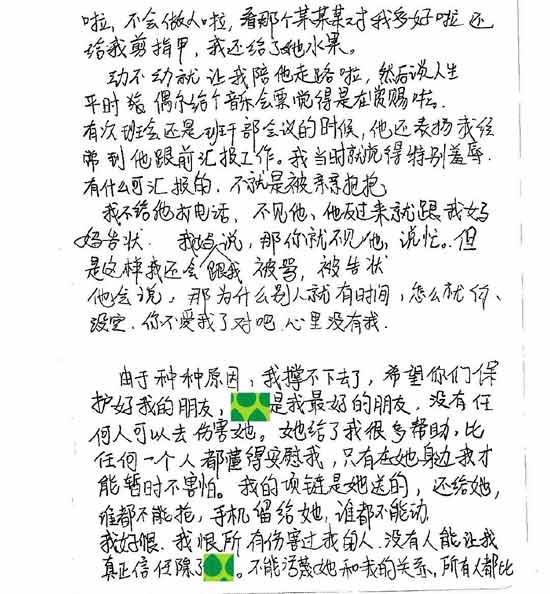 啦，不会做人啦，看那个某某某对我多好啦还
给我剪指甲，我还给了她水果。
动不动就让我陪他走路啦，然后谈人生
平时 偶尔给个音乐会票觉得是在赏赐啦.
有次班会还是班干部会议的时候，他还表扬我经
常到他跟前汇报工作。我当时就觉得特别羞辱.
有什么可汇报的. 不就是被亲亲抱抱
我不给他打电话，不见他，他反过来就跟我妈
妈告状. 我妈说，那你就不见他，说忙。但
是这样我还会跟我被骂，被告状
他会说，那为什么别人就有时间，怎么就你、
没空. 你不爱我了对吧 心里没有我.
由于种种原因，我撑不下去了，希望你们保
护好我的朋友，是我最好的朋友. 没有任
何人可以去伤害她。她给了我很多帮助，比
任何一个人都懂得安慰我，只有在她身边我才
能暂时不害怕。我的项链是她送的，还给她，
谁都不能抢，手机留给她，谁都不能动
我好恨. 我恨所有伤害过我的人. 没有人能让我
真正信任除了。不能污蔑她和我的关系，所有人都比